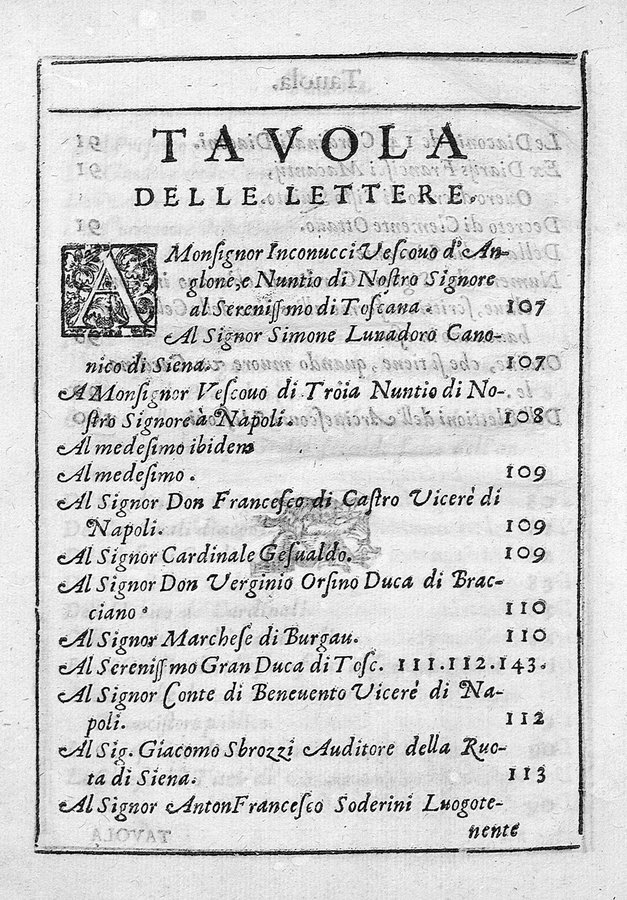 TAVOLA
DELLE LETTERE.
A Monsignor Inconucci Vescovo d'An-
glone, e Nuntio di Nostro Signore
al Serenissmo di Toscana. 107
Al Signor Simone Lunadoro Cano-
nico di Siena. 107
A Monsignor Vescovo di Tròia Nuntio di No-
stro Signore à Napoli. 108
Al medesimo ibidem
Al medesimo. 109
Al Signor Don Francesco di Castro Vicerè di
Napoli. 109
Al Signor Cardinale Gesualdo. 109
Al Signor Don Verginio Orsino Duca di Brac-
ciano. 110
Al Signor Marchese di Burgau. 110
Al Serenissmo Gran Duca di Tosc. 111.112.143.
Al Signor Conte di Benevento Vicerè di Na-
poli. 112
Al Sig. Giacomo Sbrozzi Auditore della Ruo-
ta di Siena. 113
Al Signor AntonFrancesco Soderini Luogote-
nente